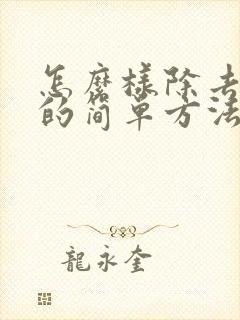 怎麽樣除去
的简單方法
龍永奎